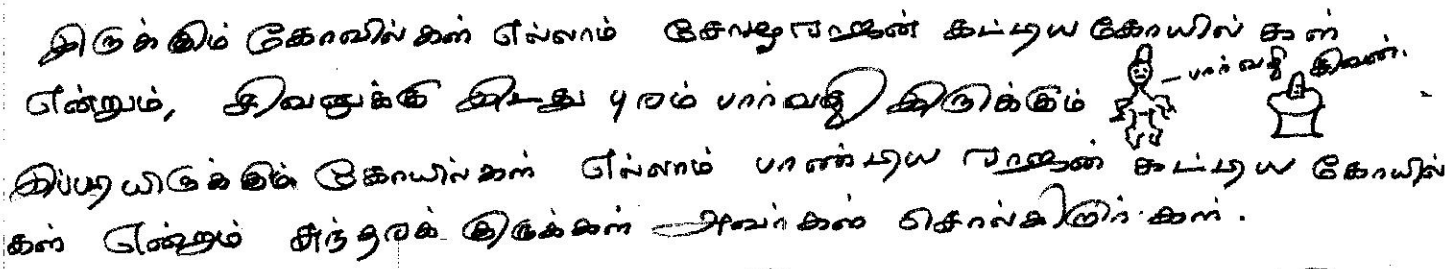 இருக்கும் கோவில்கள் எல்லாம் சேரழராஜன் கட்டிய கோயில் கள்
என்றும், சிவனுக்கு இடது புரம் பார்வதி இருக்கும் - பார்வதி சிவன்.
இப்படியிருக்கும் கோயில்கள் எல்லாம் பாண்டிய ராஜன் கட்டிய கோயில்
கள் என்றும் சுந்தரக் குருக்கள் அவர்கள் சொல்கிறார்கள்.